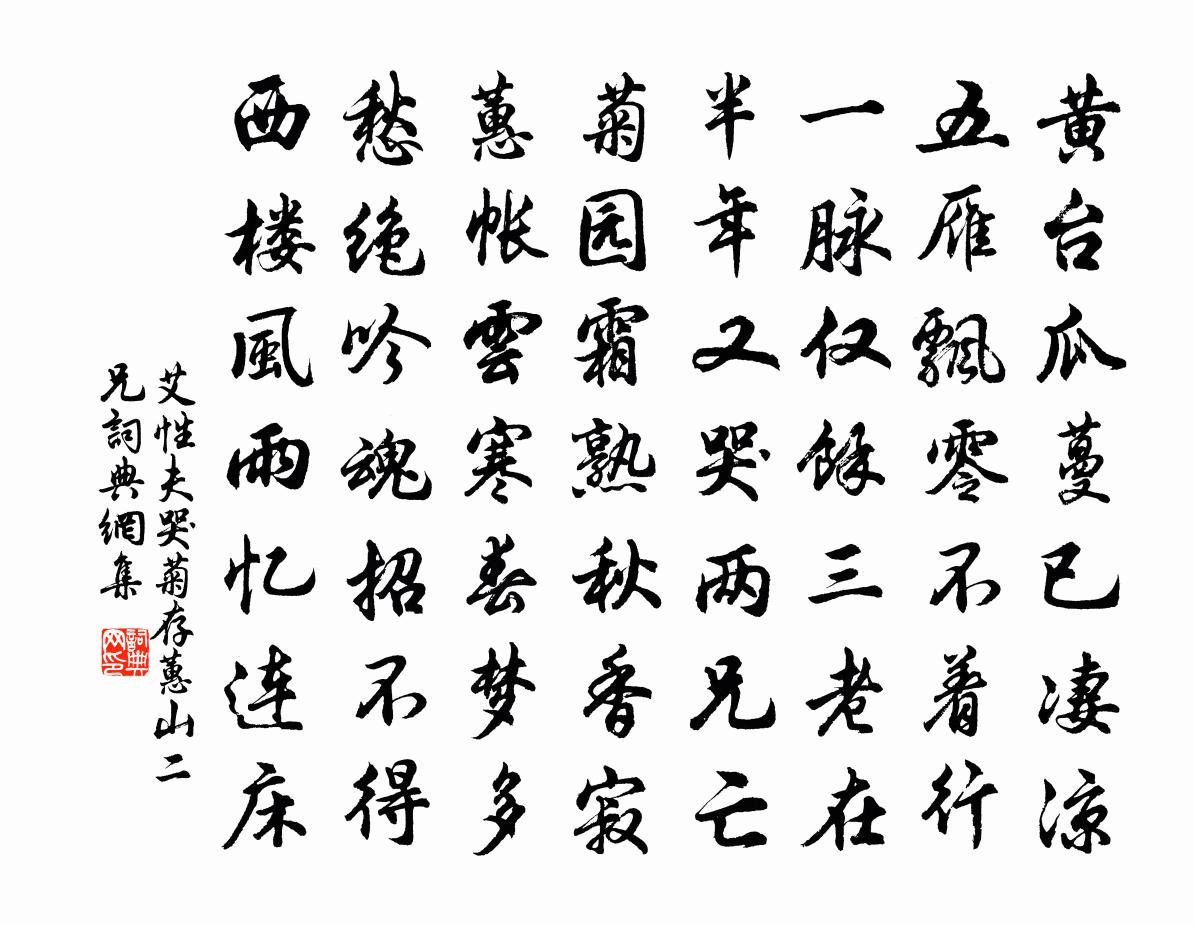 黄台瓜蔓已凄凉
五雁飘零不着行
一脉仅馀三老在
半年又哭两兄亡
菊园霜熟秋香寂
蕙帐雲寒春梦多
愁绝吟魂招不得
西楼風雨忆连床
艾性夫哭菊存蕙山二
兄詞典網集
詞典网印